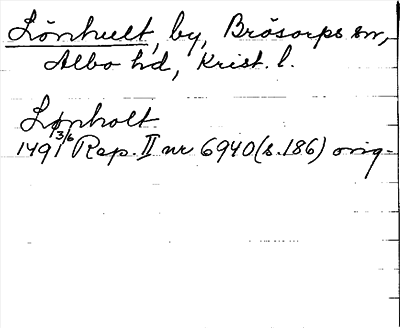 Lönhult, by, Brösarps sn,
Albo hd, Krist. l.
Lønholt
1491 3/6 Rep. II nr 6940 (s.186) orig-